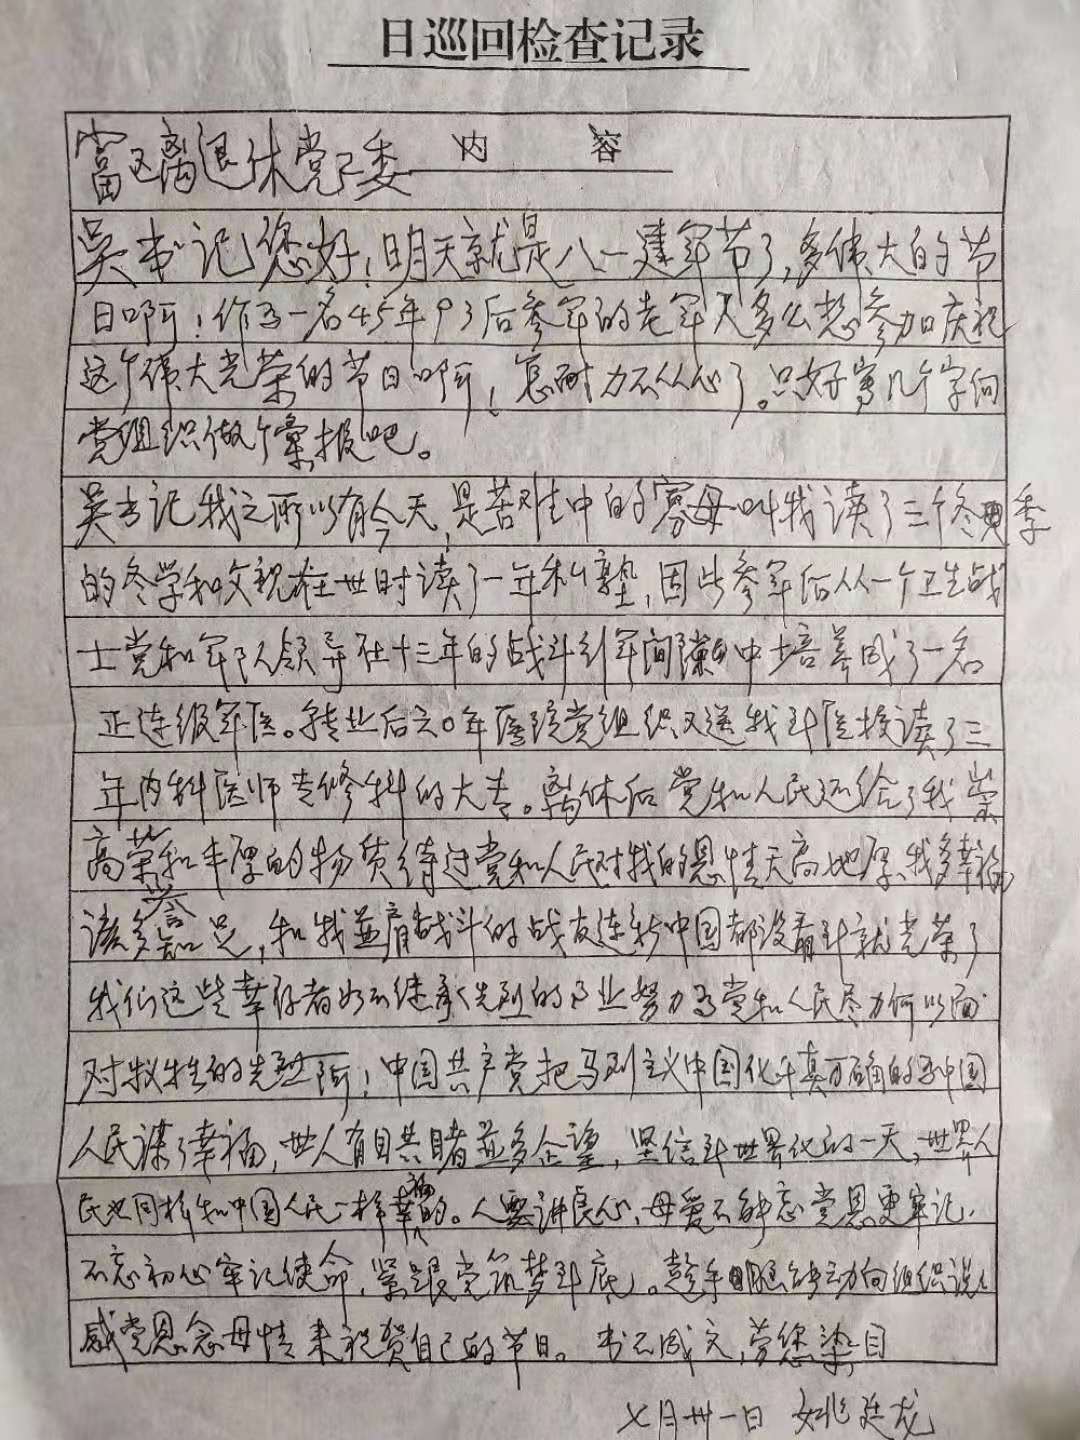 日巡回检查记录
内容
当区离退休党工委
吴书记您好！明天就是八一建军节了，多伟大的节
日啊！作为一名45年93后参军的老军人多么想参加庆祝
这个伟大光荣的节日啊！怎耐力不从心了。只好写几个字向
党组织做个彙报吧。
吴书记我之所以有今天，是苦难中的寡母叫我读了三个冬季
的冬学和父亲在世时读了一年私塾，因此参军后从一个卫生战
士党和军队领导在十三年的战斗行军间隙中培养成了一名
正连级军医。转业后六〇年医院党组织又送我到医校读了三
年内科医师专修科的大专。离休后党和人民还给了我崇
高荣誉和丰厚的物质待过党和人民对我的恩情天高地厚、我多幸福
该多知足，和我並肩战斗的战友连新中国都没看到就光荣了
我们这些幸存者如不继承先烈的遗业努力为党和人民尽力何以面
对牧牲的先烈啊！中国共产党把马列主义中国化千真万确的为中国
人民谋了幸福，世人有目共睹並多企望，坚信到世界化的一天，世界人
民也同样和中国人民一样幸福的。人要讲良心，母爱不能忘党恩更牢记.
不忘初心牢记使命，紧跟党筑梦到底。趁手腿能动向组织说
感党恩念母情来祝贺自己的节日。书不成文，劳您染目
七月卅一日 姚廷龙